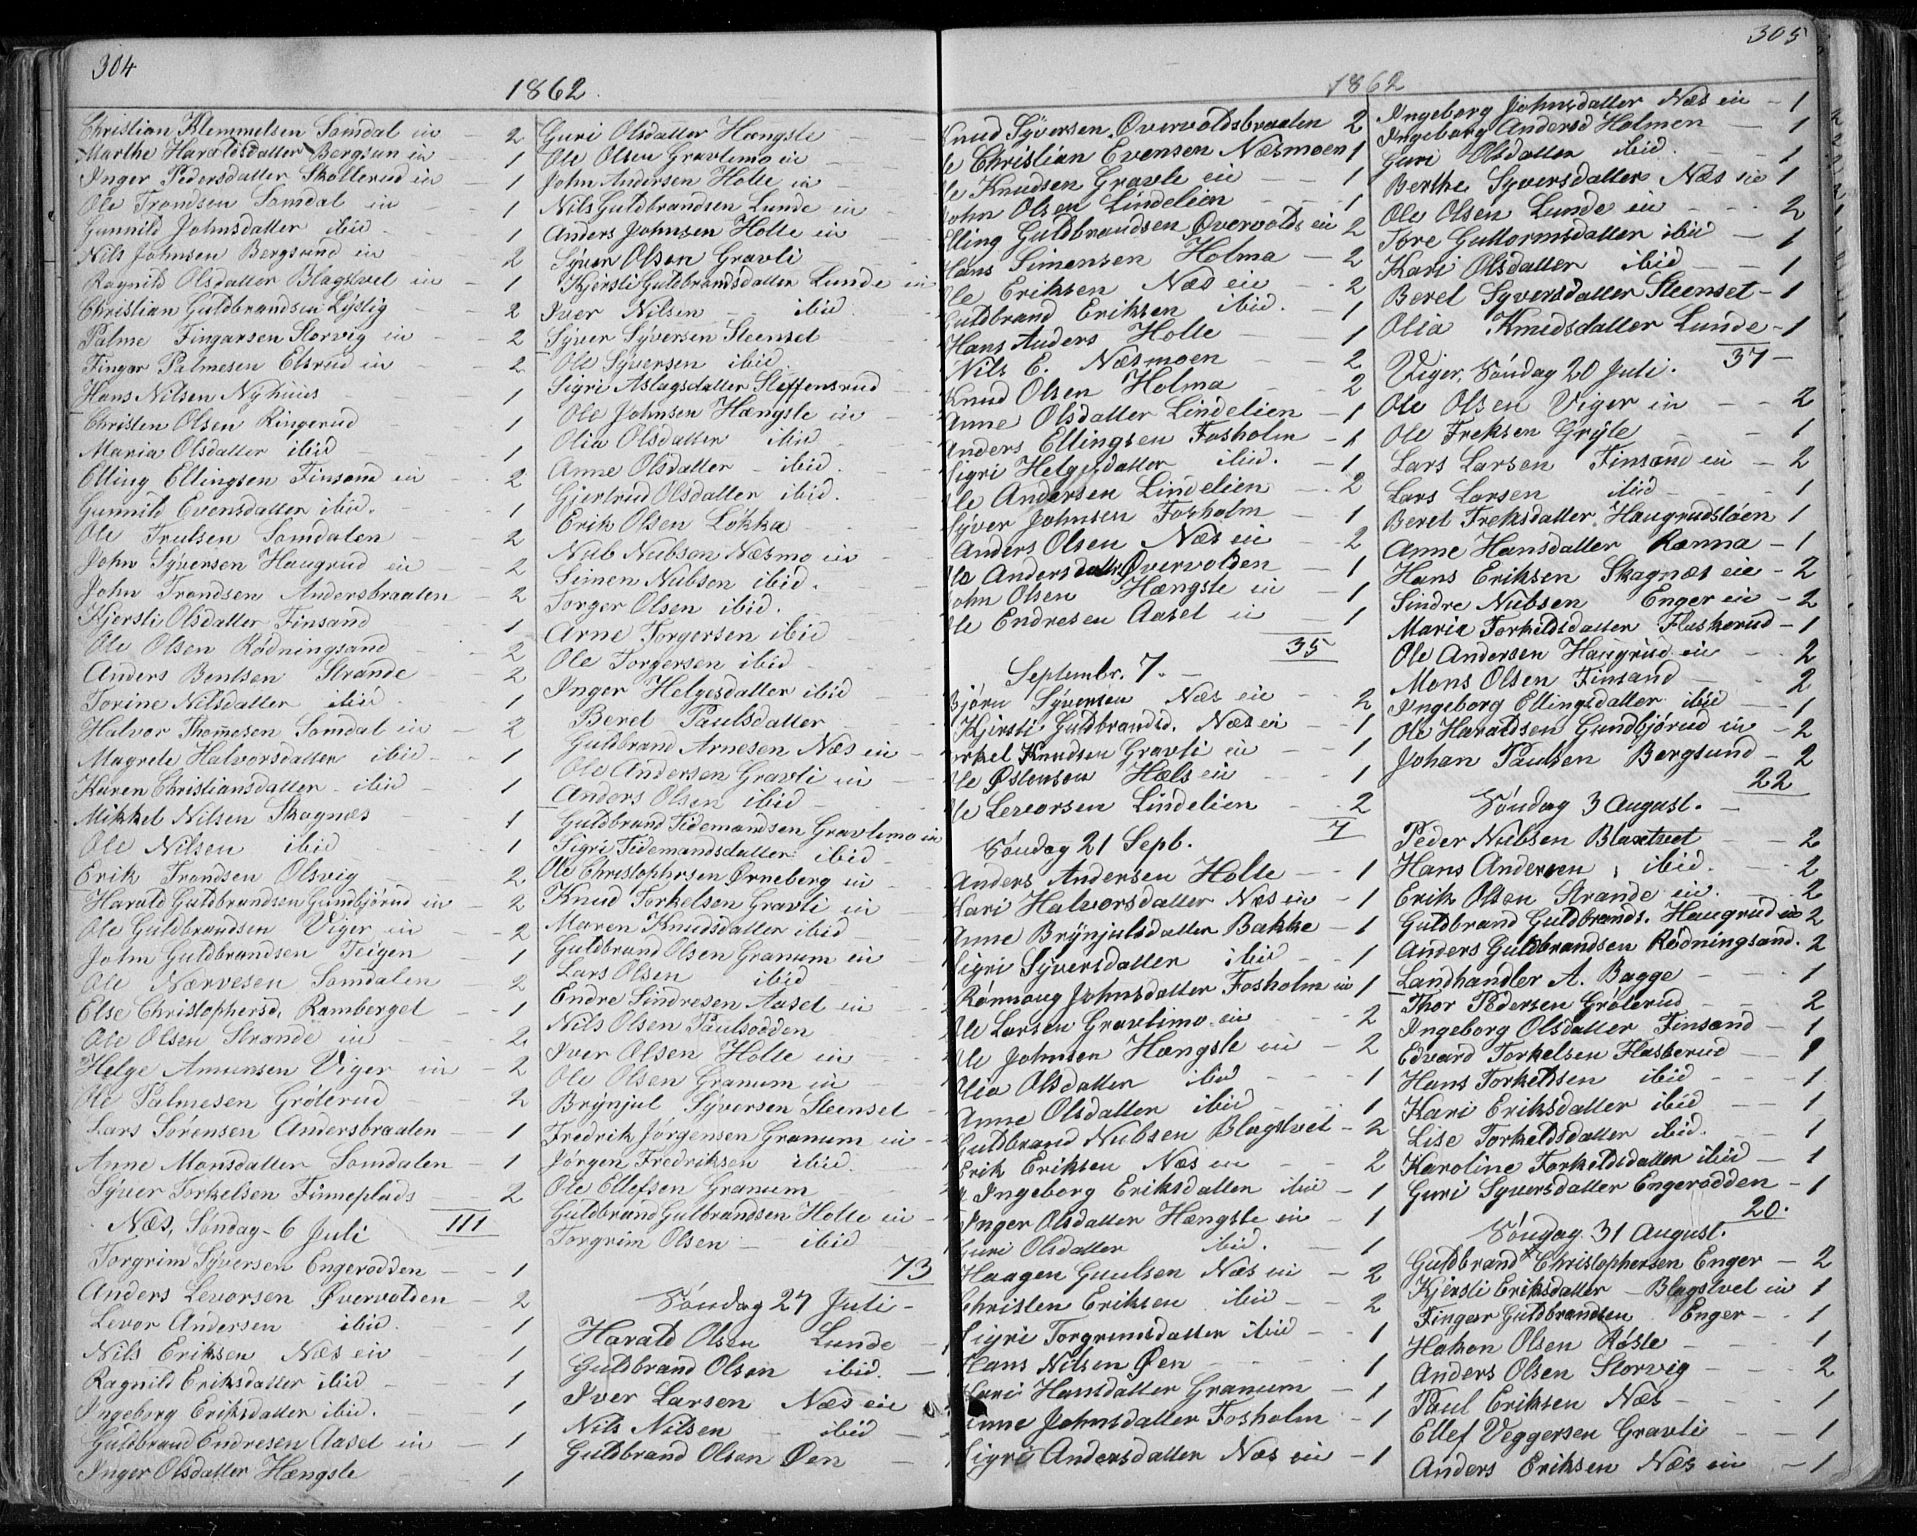 304
1862.
Christian Klemmetsen Somdal in - 2
Marthe Haraldsdatter Bergsun in - 1
Inger Pedersdatter Skollerud in - 1
Ole Trondsen Somdal in - 1
Gunnild Johnsdatter ibid - 1
Nils Johnsen Bergsund in - 2
Ragnild Olsdatter Blagstvet in - 1
Christian Guldbrandsen Lystig - 2
Palme Fingarsen Storvig in - 2
Fingar Palmesen Elsrud in - 2
Hans Nilsen Nyhuus - 1
Christen Olsen Ringerud 1
Maria Olsdatter ibid - 1
Elling Ellingsen Finsand in - 2
Gunnild Evensdatter ibid. - 1
Ole Trulsen Somdalen - 2
John Syversen Haugrud in - 2
John Trondsen Andersbraaten - 2
Kjersti Olsdatter Finsand - 1
Ole Olsen Rödningsand - 2
Anders Bentsen Strande - 2
Torine Nilsdatter ibid - 1
Halvor Thomesen Somdal in - 2
Magrete Halvorsdatter ibid - 1
Karen Christiansdatter ibid - 1
Mikkel Nilsen Skagnæs - 1
Ole Nilsen ibid - 1
Erik Trondsen Olsvig - 2
Harald Guldbrandsen Gunbjörud in - 2
Ole Guldbrandsen Viger in - 2
John Guldbrandsen Teigen - 1
Ole Nærvesen Somdalen - 2
Else Christophersd. Ramberget - 1
Ole Olsen Strande in - 2
Helge Amunsen Viger in - 2
Ole Palmesen Gröterud - 2
Lars Sörensen Andersbraaten - 1
Anne Monsdatter Somdalen - 1
Syver Torkelsen Finneplads - 2
Næs, Söndag - 6 Juli 111
Torgrim Syversen Engerodden - 1
Anders Levorsen Øvervolden - 2
Levor Andersen ibid. - 1
Nils Eriksen Næs ein - 1
Ragnild Eriksdatter ibid - 1
Ingeborg Eriksdatter ibid. - 1
Guldbrand Endresen Aaset in - 1
Inger Olsdatter Hængsle 1
Guri Olsdatter Hængsle
Ole Olsen Gravlimo in
John Andersen Holte in
Nils Guldbrandsen Lunde in
Anders Johnsen Holte in
Syver Olsen Gravli
Kjersti Guldbrandsdatter Lunde in
Iver Nilsen - ibid.
Syver Syversen Steenset
Ole Syversen ibid.
Sigri Aslagsdatter Steffensrud
Ole Johnsen Hængsle in
Olia Olsdatter ibid
Anne Olsdatter - ibid.
Gjertrud Olsdatter ibid.
Erik Olsen Løkka
Nub Nubson Næsmo in
Simen Nubson ibid.
Torger Olsen ibid.
Arne Torgersen ibid
Ole Torgersen ibid
Inger Helgesdatter ibid
Beret Paulsdatter
Guldbrand Arnesen Næs in
Ole Andersen Gravli in
Anders Olsen ibid -
Guldbrand Tidemandsen Gravlimo in
Sigri Tidemandsdatter ibid -
Ole Christophrsen Ørneberg in -
Knud Torkelsen Gravli in
Maren Knudsdatter ibid
Guldbrand Olsen Granum in
Lars Olsen ibid
Endre Sindresen Aaset in
Nils Olsen Paulsodden
Iver Olsen Holte in
Ole Olsen Granum in
Brynjul Syversen Steenset -
Fredrik Jörgensen Granum in -
Jörgen Fredriksen ibid.
Ole Ellefsen Granum
Guldbrand Gulbrandsen Holte in
Torgrim Olsen - ibid -
73
Söndag 27 Juli -
Harald Olsen Lunde -
Guldbrand Olsen ibid. -
Iver Larsen Næs ein
Nils Nilsen ibid
Guldbrand Olsen Øen -
305
1862
Knud Syversen Øvervoldsbraaten 2
le Christian Evensen Næsmoen 1
le Knudsen Gravle ein - 1
John Olsen Lindelien - 1
Elling Guldbrandsen Øvervolds ein 2
Hans Simensen Holma - 2
Ole Eriksen Næs ein - 2
Guldbrand Eriksen ibid. - 1
Hans Anders Holte - 1
Nils E. Næsmoen 2
Knud Olsen Holma - 2
Anne Olsdatter Lindelien - 1
Anders Ellingsen Fosholm - 1
Sigri Helgesdatter ibid. - 1
Ole Andersen Lindelien - 2
Syver Johnsen Fosholm - 1
Anders Olsen Næs ein - 2
Ole Andersdatter Øvervolden - 1
John Olsen Hængsle in - 1
Ole Endresen Aaset in - 1
35
Septembr. 7. -
Bjørn Syversen Næs ein - 2
Kjersti Guldbrandsd. Næs ein - 1
Torkel Knudsen Gravli in - 1
Ole Østensen Hæls ein - 1
Ole Levorsen Lindelien - 2
7
Söndag 21 Sepb.
Anders Andersen Holte - 1
Kari Halvorsdatter Næs in - 1
Anne Brynjulsdatter Bakke - 1
Sigri Syversdatter ibid - 1
Rönnoug Johnsdatter Fosholm in 1
Ole Larsen Gravlimo ein - 2
Ole Johnsen Hængsle in - 2
Olia Olsdatter ibid - 1
Anne Olsdatter ibid - 1
Guldbrand Nubsen Blagstvet - 2
Erik Eriksen Næs in - 2
Ingeborg Eriksdatter ibid - 1
Inger Olsdatter Hængsle in - 1
Guri Olsdatter ibid. - 1
Haagen Guulsen Næs in - 2
Christen Eriksen ibid - 2
Sigri Torgrimsdatter ibid - 1
Hans Nilsen Øen - 1
Kari Hansdatter Granum - 1
Anne Johnsdatter Fosholm - 1
Sigri Andersdatter Næs ein - 1
Ingeborg Johnsdatter Næs ein - 1
Ingeborg Andersd Holmen - 1
Guri Olsdatter ibid. - 1
Berthe Syversdatter Næs ein 1
Ole Olsen Lunde ein - 2
Tore Guttormsdatter ibid - 1
Kari Olsdatter ibid - 1
Beret Syversdatter Steenset - 1
Olia Knudsdatter Lunde - 1
37 -
Viger, Söndag 20 Juli.
Ole Olsen Viger in - 2
Ole Freksen Gryte - 1
Lars Larsen Finsand ein - 2
Lars Larsen ibid - 1
Beret Freksdatter Haugrudsløen 1
Anne Hansdatter Rønna - 1
Hans Eriksen Skagnæs ein - 2
Sindre Nubsen Enger ein - 2
Maria Torkeldsdatter Flaskerud - 1
Ole Andersen Haugrud ein - 2
Mons Olsen Finsand - 2
Ingeborg Ellingsdatter ibid - 1
Ole Haraldsen Gundbjörud in - 2
Johan Paulsen Bergsund - 2
22
Söndag 3 August. -
Peder Nubsen Blaxtvet - 2
Hans Andersen ibid. - 2
Erik Olsen Strande ein. - 2
Guldbrand Guldbrands. Haugrud in 2
Anders Guldbrandsen Rödningsand. 2
Landhandler A. Bagge - 1
Thor Pedersen Gröterud - 2
Ingeborg Olsdatter Finsand - 1
Edvard Torkelsen Flaskerud - 1
Hans Torkeldsen ibid - 1
Kari Eriksdatter ibid - 1
Lise Torkeldsdatter ibid. - 1
Karoline Torkeldsdatter ibid - 1
Guri Syversdatter Engerodden - 1
20.
Söndag 31 August.
Guldbrand Christophersen Enger - 2
Kjersti Eriksdatter - Blagstvet in 1
Fingar Guldbrandsen Enger - 1
Hakon Olsen Røste - 1
Anders Olsen Storvig - 2
Paul Eriksen Næs - 1
Ellef Veggersen Gravli - 1
Anders Eriksen Næs ein - 1